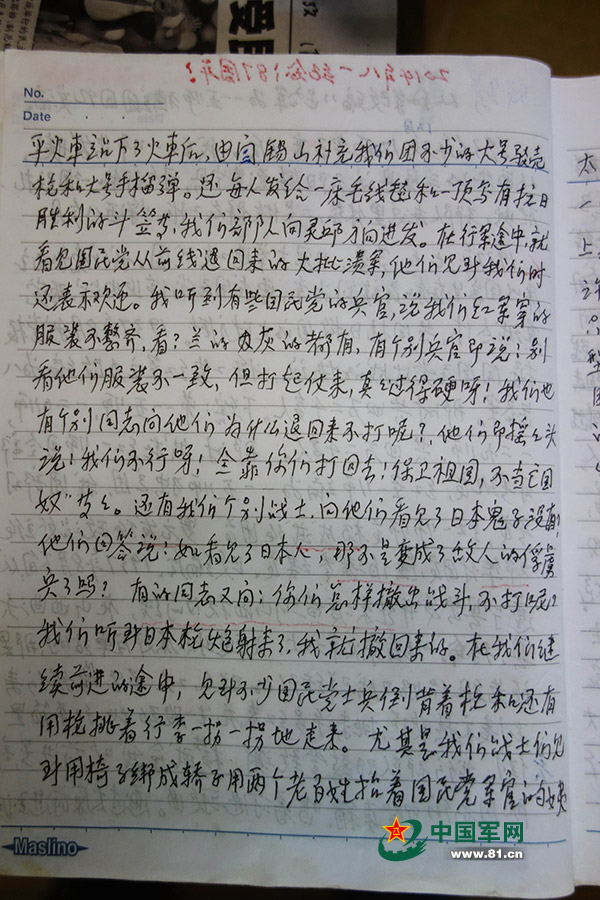 2014年八一纪念187周年!
No.
Date
平火車站下了火車后,由闫锡山补充我们团不少的大号驳壳
枪和大号手榴弹。还每人发给一床毛线毯和一顶写有抗日
胜利的斗签等,我们部队向灵邱方向进发。在行军途中,就
看見国民党从前线退回来的大批溃军,他们見到我们时
还表示欢迎。我听到有些国民党的兵官,说我们红军穿的
服装不整齐,看?兰的灰灰的都有,有个别兵官即说:别
看他们服装不一致,但打起仗来,真是过得硬呀!我们也
有个别同志问他们为什么退回来不打呢?,他们即摇摇头
说!我们不行呀!全靠你们打回去!保卫祖国,不当亡国
奴"等等。还有我们个别战士,问他们看見了日本鬼子没有?
他们回答说:如看見了日本人,那不是变成了敌人的俘虏
兵了吗?有的同志又问:你们怎样撤出战斗,不打呢?
我们听到日本枪炮射来了,我就撤回来的。在我们继
续前进的途中,見到不少国民党士兵倒背着枪和还有
用枪挑着行李一拐一拐地走来。尤其是我们战士们見
到用椅子绑成轿子用两个老百姓抬着国民党军官的姨
Maslino
中国军网
www.81.cn
太
一
上